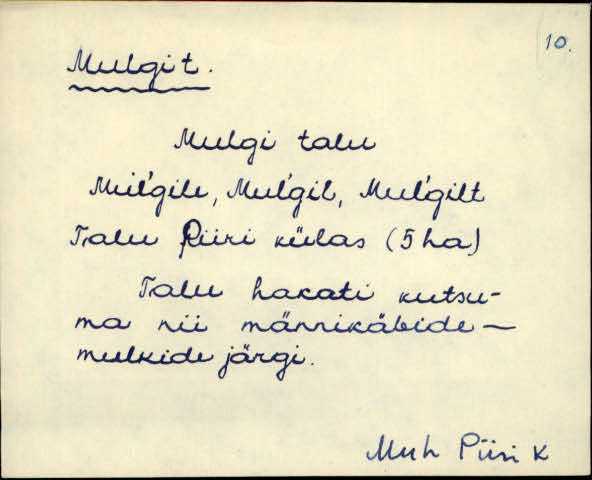 10.
Mulgit.
Mulgi talu
Mul'gile, Mul'gil, Mul'gilt
Talu Piiri külas (5 ha)
Talu hakati kutsu-
ma nii männikäbide –
mulkide järgi.
Muh Piiri K